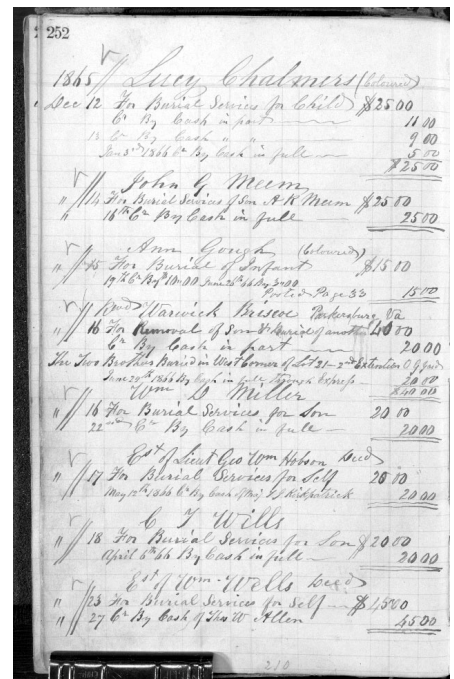 252
1865 Lucy Chalmers (Coloured)
Dec 12 For Burial Services for Child $25 00
Cr By Cash in part 11 00
13 Cr By Cash " " 9 00
Jan 3rd 1866 Cr By Cash in full 5 00
$25 00
John G Meem
" 14 For Burial Services of Son A K Meem $25 00
" 16th Cr By Cash in full 25 00
Ann Gough (Coloured)
" 15 For Burial of Infant $15 00
19th Cr By 10.00 June 26th 66 By 5.00
Posted Page 33 15 00
Revd Warwick Briscoe Parkersburg Va
" 16 For Removal of Son & Burial of another 40 00
Cr By Cash in part 20 00
The Two Brothers Buried in West Corner of Lot 21 - 2nd Extention O G Yard
June 29th 1866 By Cash in full through Express 20 00
$40 00
Wm D Miller
" 16 For Burial Services for Son 20 00
22nd Cr By Cash in full 20 00
Est of Lieut Geo Wm Hobson Decd
" 17 For Burial Services for Self 20 00
May 12th 1866 Cr By Cash of Maj Kirkpatrick 20 00
C T Wills
" 18 For Burial Services for Son $20 00
April 6th 66 By Cash in full 20 00
Est of Wm Wells Decd
" 23 For Burial Services for Self $45 00
" 27 Cr By Cash of Thos W Allen 45 00
210